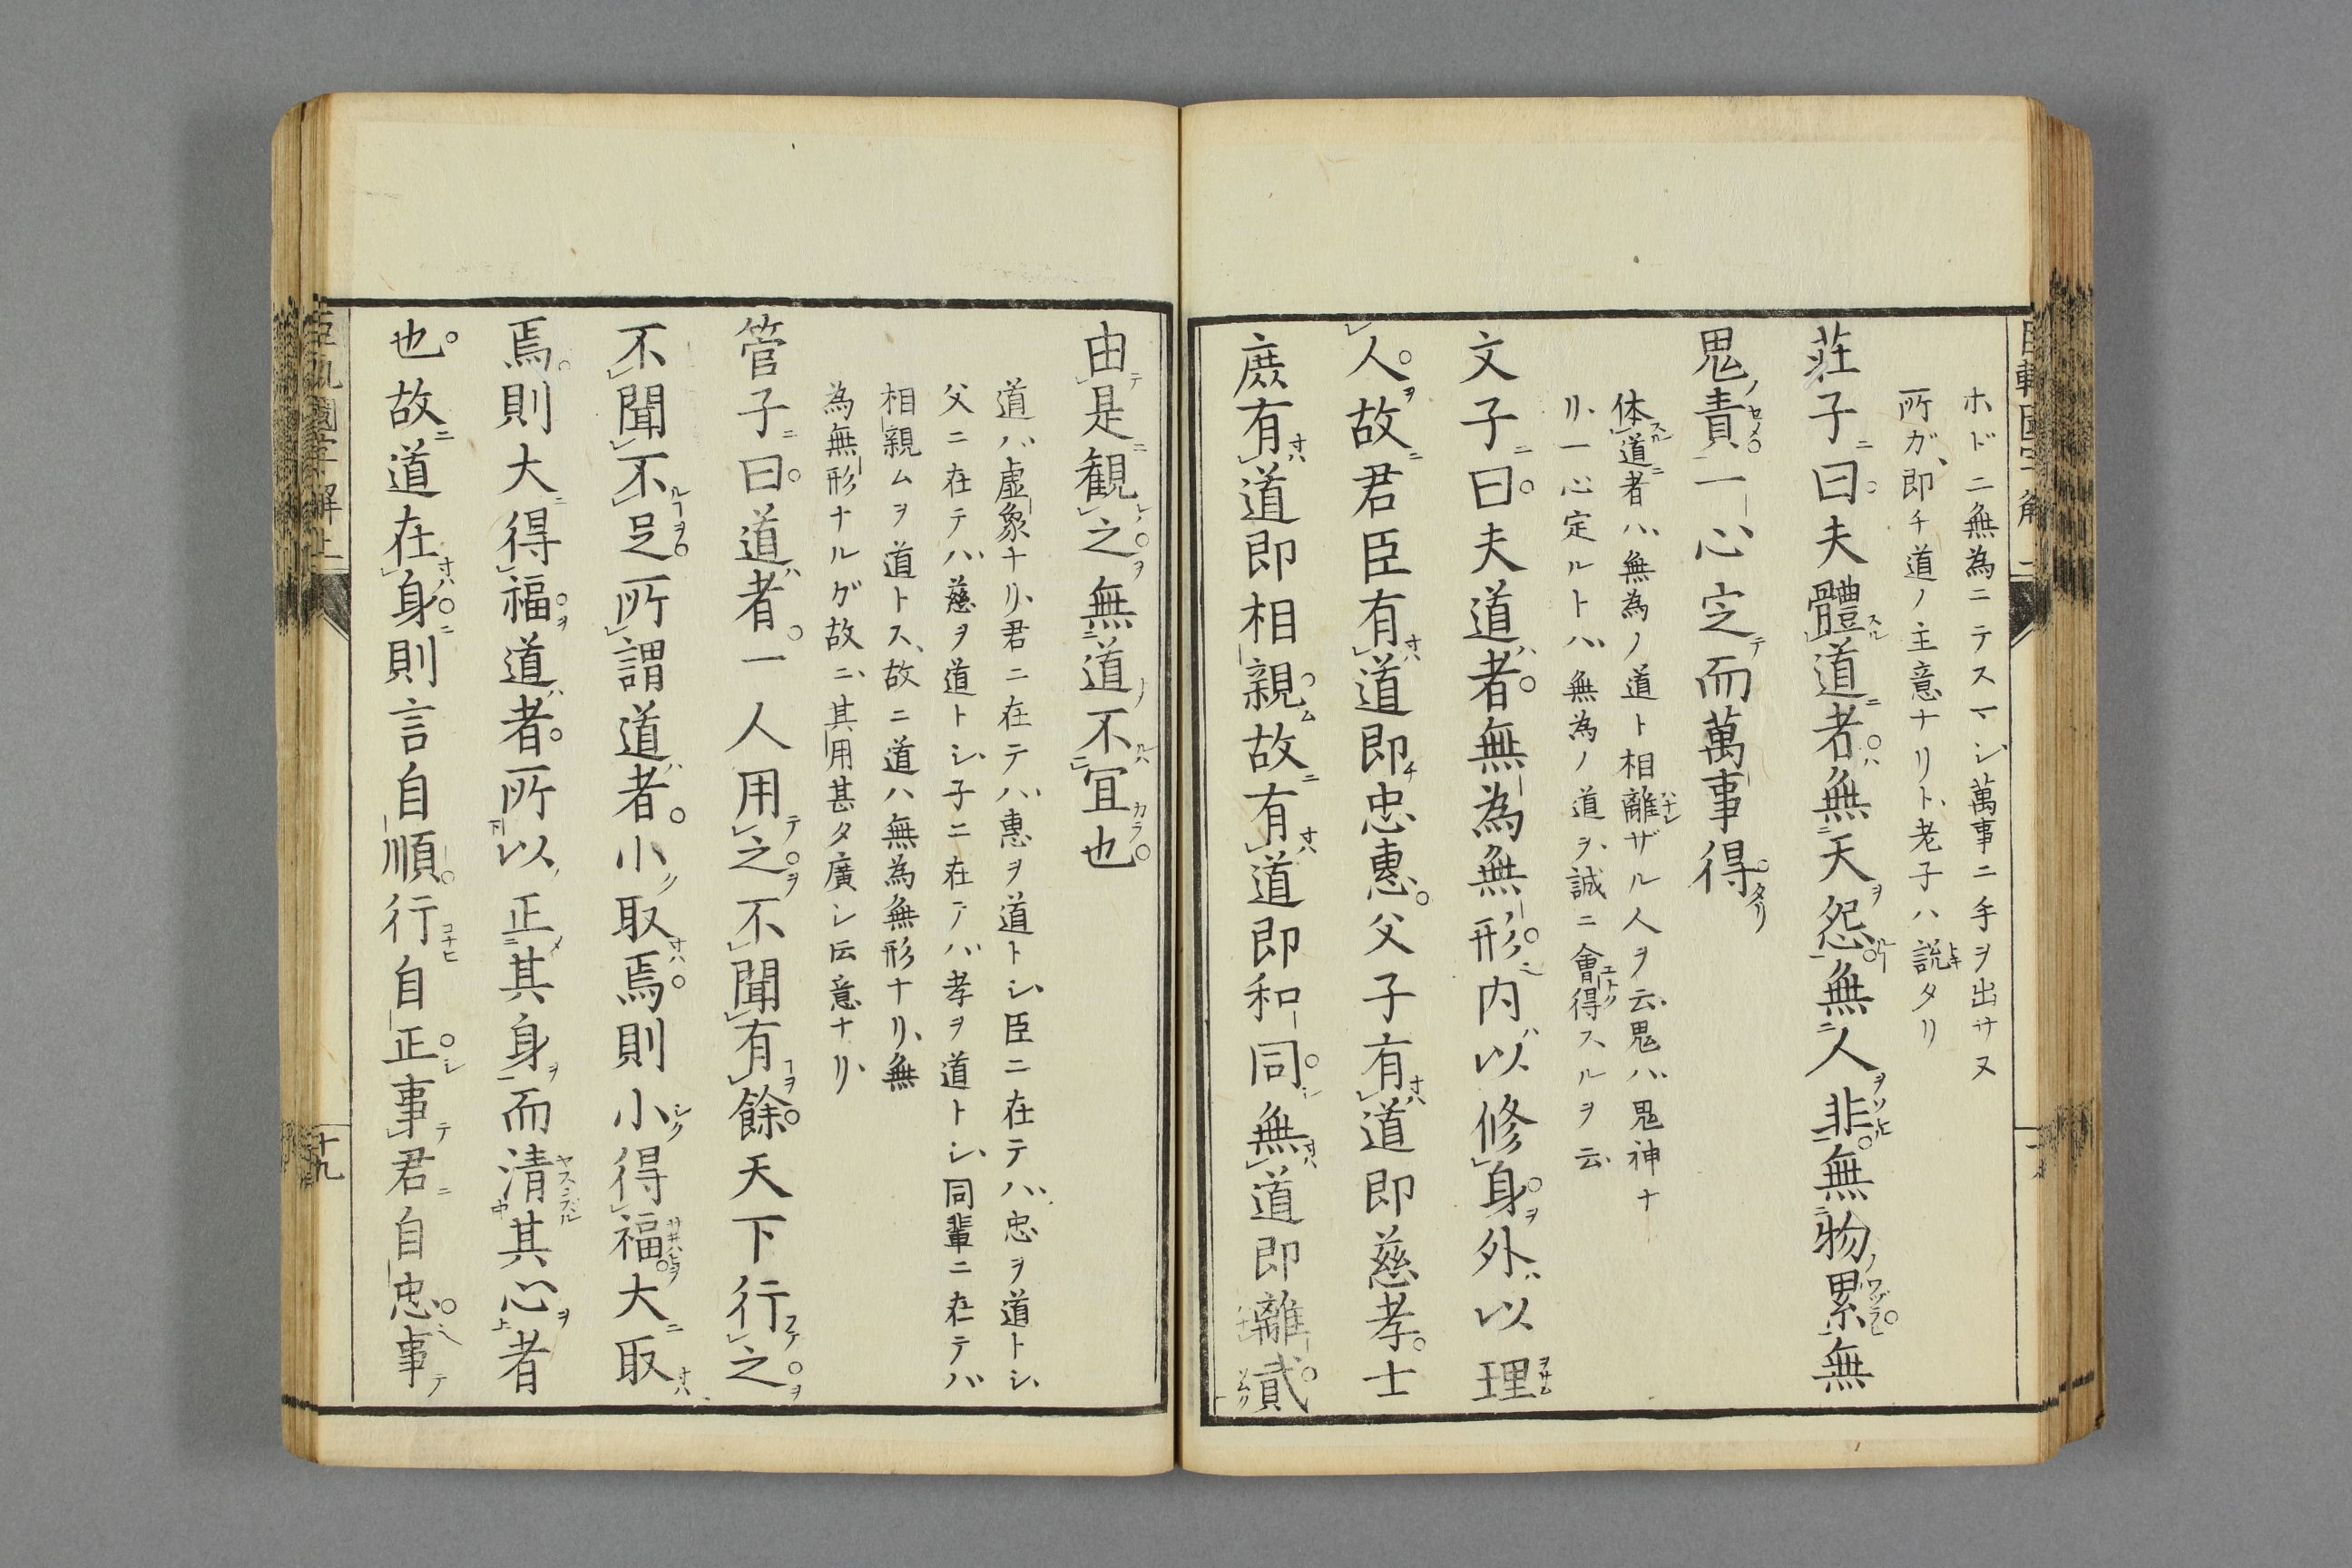 ホドニ無為ニテスマシ、萬事ニ手ヲ出サヌ
所ガ、即チ道ノ主意ナリト、老子ハ説タリ
莊子曰。夫體道者。無天怨。無人非。無物累。無
鬼責。一心定而萬事得。
体道者ハ、無為ノ道ト相離ザル人ヲ云、鬼ハ、鬼神ナ
リ、一心定ルトハ、無為ノ道ヲ、誠ニ會得スルヲ云、
文子曰。夫道者。無為無形。内以修身。外以理
人。故君臣有道即忠惠。父子有道即慈孝。士
庶有道即相親。故有道即和同。無道即離貳。
由是観之。無道不宜也。
道ハ、虚象ナリ、君ニ在テハ、惠ヲ道トシ、臣ニ在テハ、忠ヲ道トシ、
父ニ在テハ、慈ヲ道トシ、子ニ在テハ、孝ヲ道トシ、同輩ニ在テハ
相親ムヲ道トス、故ニ道ハ無為無形ナリ、無
為無形ナルガ故ニ、其用甚タ廣シ云意ナリ、
管子曰。道者。一人用之。不聞有餘。天下行之。
不聞不足。所謂道者。小取焉。則小得福。大取
焉。則大得福。道者。所以正其身。而清其心者
也。故道在身。則言自順。行自正。事君自忠。事
臣軌國字解上
十九